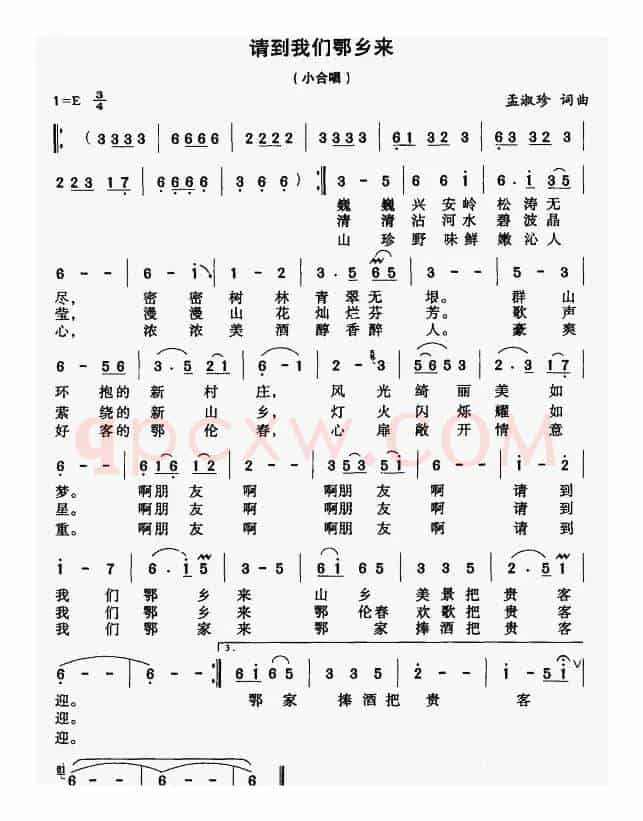 请到我们鄂乡来
（小合唱）
1=E 3/4 孟淑珍 词曲
（3333 | 6666 | 2222 | 3333 | 61 32 3 | 63 32 3 |
223 17 | 6666 | 3 6 6 ）:‖: 3 - 5 | 6 6 i | 6. i 35 |
巍 巍兴安岭 松涛无
清 清沾河水 碧波晶
山 珍野味鲜 嫩沁人
6 - - | 6 - i | 1 - 2 | 3. 5 65 | 3 - - | 2 - 3 |
尽， 密密树林青翠无 垠。 群山
莹， 漫漫山花灿烂芬 芳。 歌声
心， 浓浓美酒醇香醉 人。 豪爽
6 - 56 | 3. 5 21 | 6 - 1 | 2 - 3 | 5653 | 2. 3 17 |
环 抱的新 村庄， 风光绮丽美如
萦 绕的新 山乡， 灯火闪烁耀如
好 客的鄂 伦春， 心扉敞开情意
6 - - | 6 16 12 | 2 - - | 353 51 | 6 - - | i - 2 |
梦。 啊朋友 啊 啊朋友 啊 请到
星。 啊朋友 啊 啊朋友 啊 请到
重。 啊朋友 啊 啊朋友 啊 请到
i - 7 | 6. i 5 | 3 - 5 | 6 i 65 | 3 3 5 | 2. 51 |
我们鄂 乡来 山乡 美景把贵 客
我们鄂 乡来 鄂伦春 欢歌把贵 客
我们鄂 家来 鄂家 捧酒把贵 客
6 - - | 6 - - :‖ 3. 6 i 65 | 3 3 5 | 2 - i | i - 5i V |
迎。 鄂家 捧酒把贵 客
迎。
迎。
6 - - | 6 - - | 6 - - | 6 - - ‖
qpcxw.COM